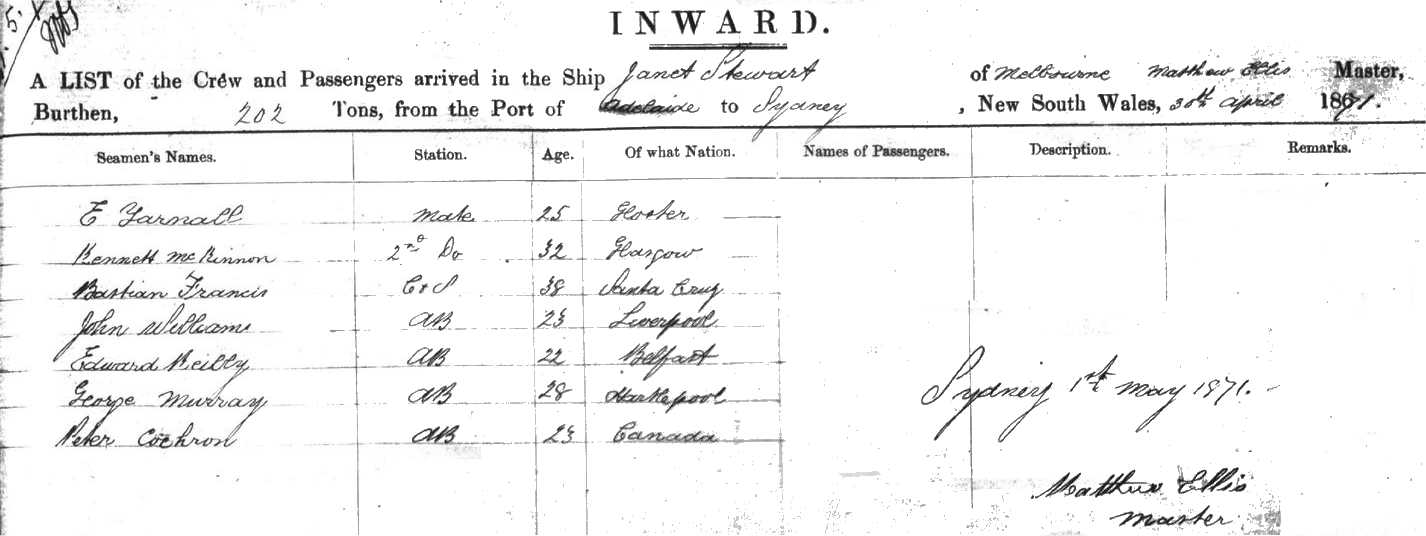 5.
INWARD.
A LIST of the Crew and Passengers arrived in the Ship Janet Stewart of Melbourne Matthew Ellis Master,
Burthen, 202 Tons, from the Port of Adelaide to Sydney, New South Wales, 30th April 1871.
Seamen's Names. Station. Age. Of what Nation. Names of Passengers. Description. Remarks.
E Yarnall Mate 25 Gloster
Kennett McKinnon 2nd Do 32 Glasgow
Bastian Francis C & S 38 Santa Cruz
John Williams AB 23 Liverpool
Edward Reilly AB 22 Belfast
George Murray AB 28 Hartlepool
Peter Cochron AB 23 Canada
Sydney 1st May 1871.
Matthew Ellis
Master